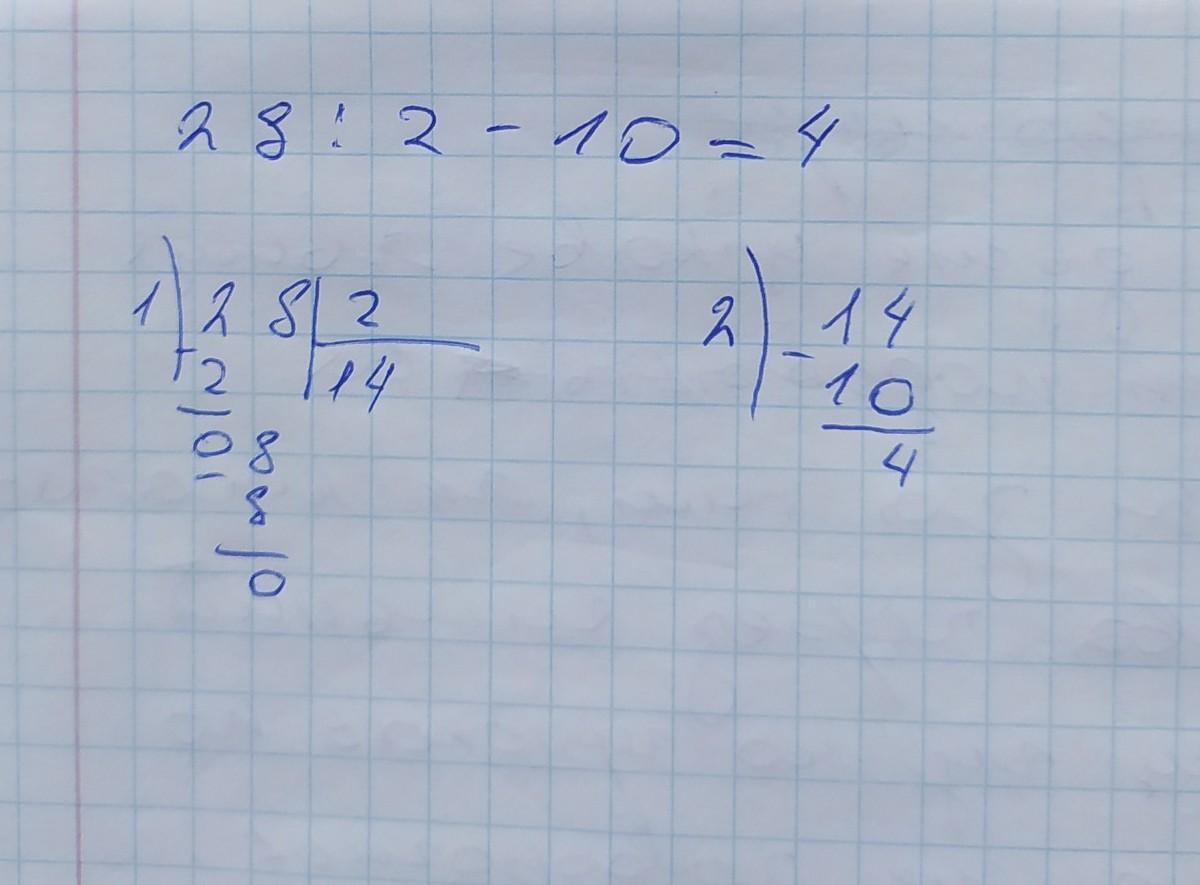 28 : 2 - 10 = 4
1) 28 | 2
- 2 | 14
0 8
- 8
0
2) - 14
10
4